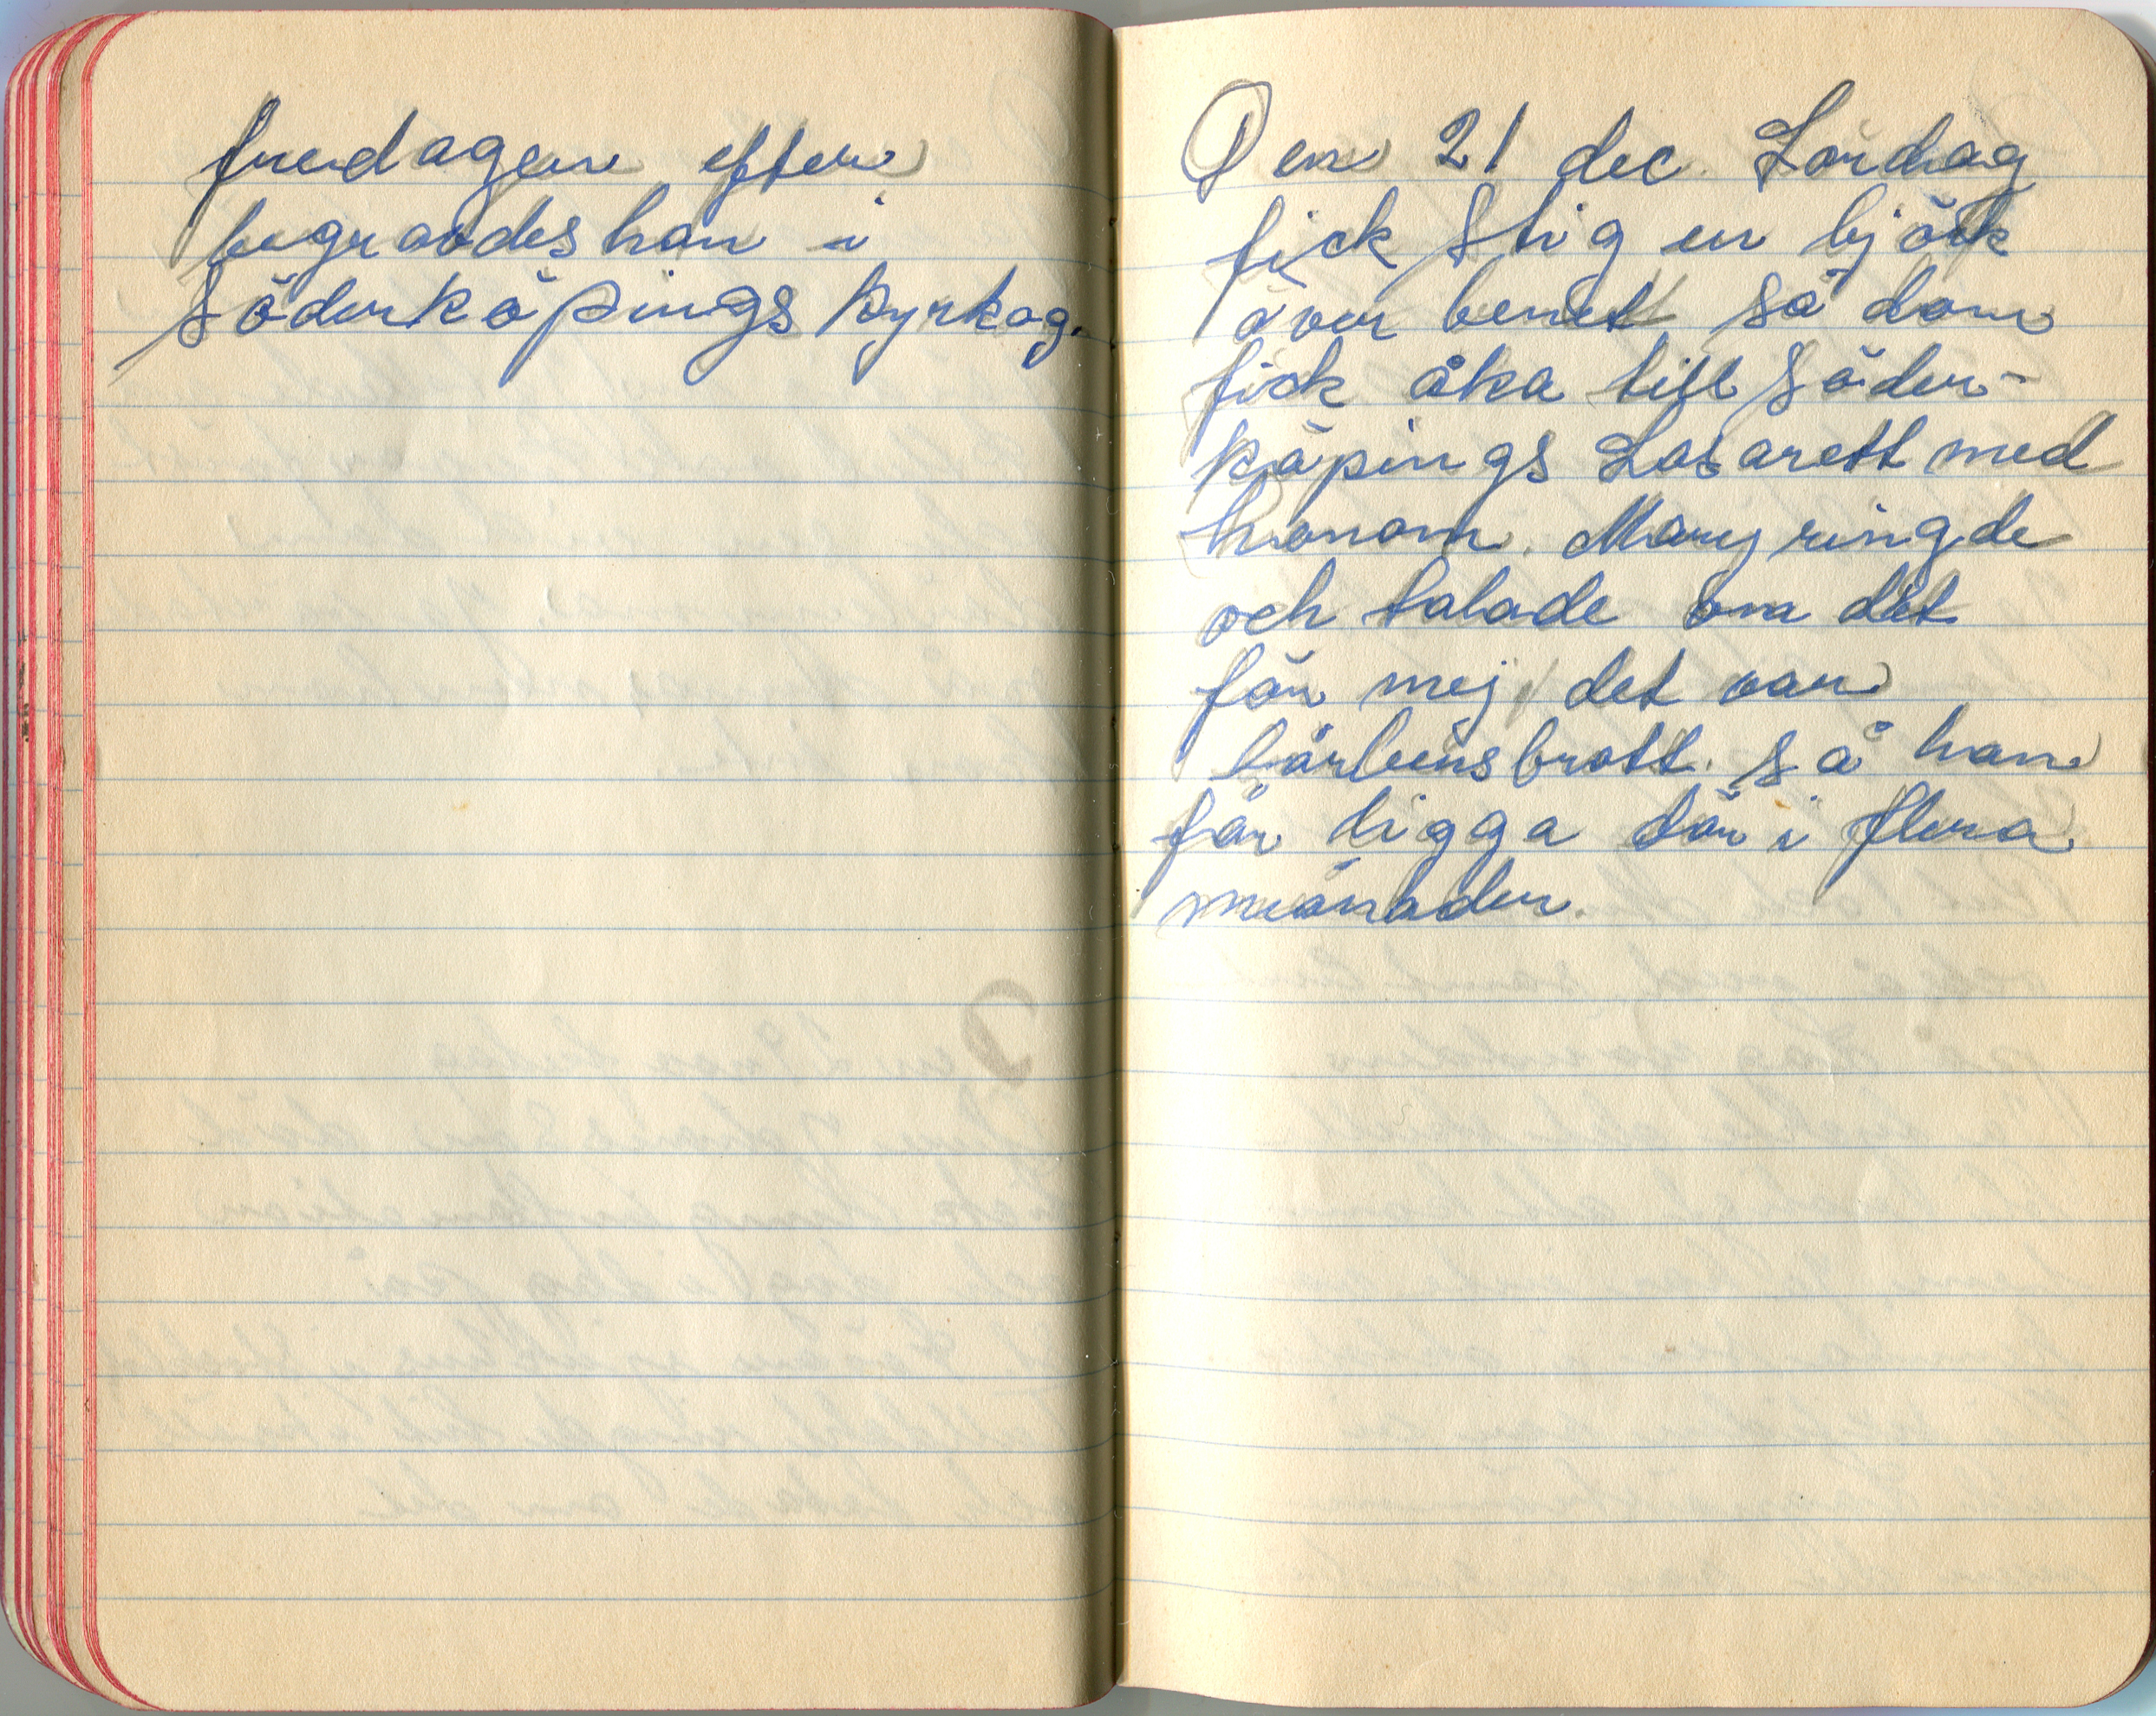 fredagen efter
begravdes han i
Söderköpings kyrkog.
Den 21 dec. Lördag
fick Stig en björk
över benet så dom
fick åka till Söder-
köpings Lasarett med
honom. Mary ringde
och talade om det
för mej, det var
lårbensbrott. så han
får ligga där i flera
månader.